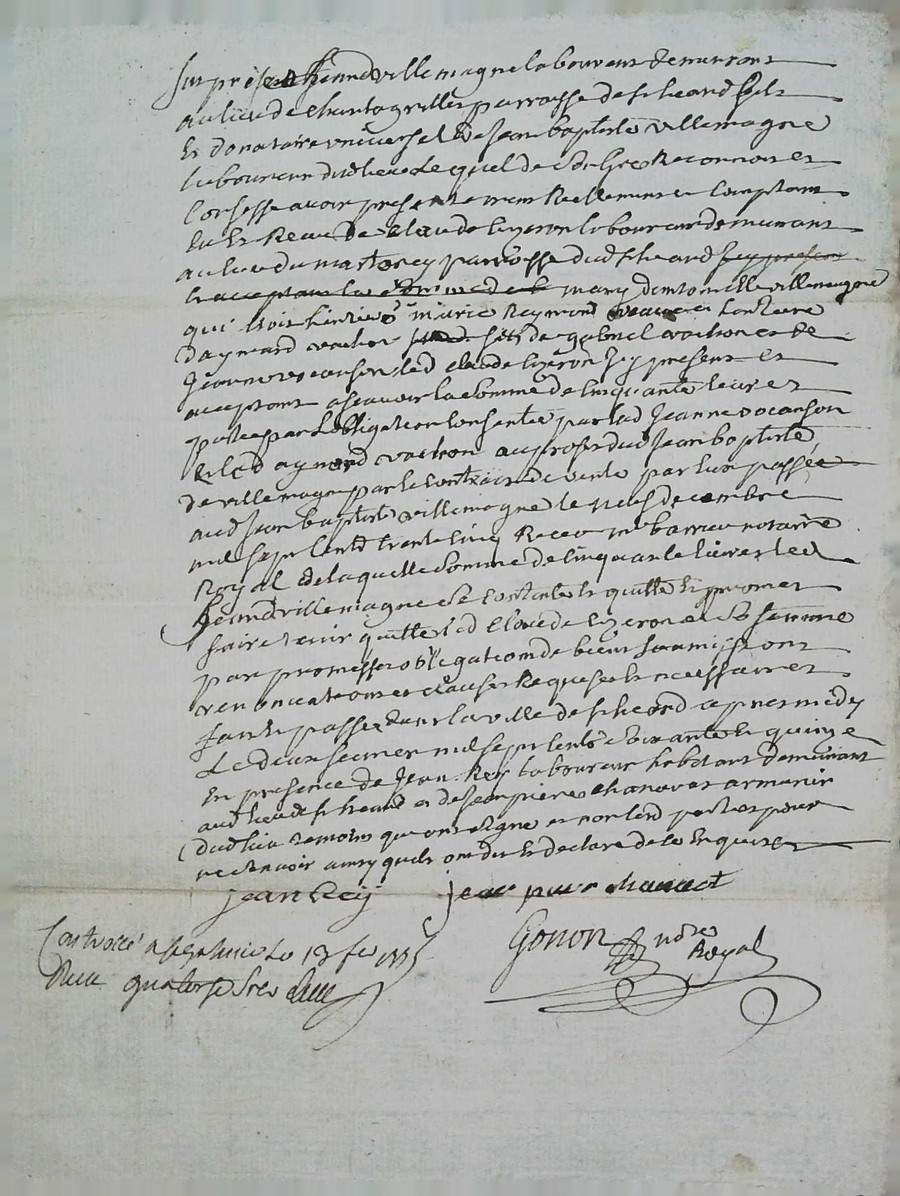 fut présent Jean villemagne laboureur demeurant
au lieu de Chantagrillet parroisse de st heand fils
Et donataire universel de Jean baptiste villemagne
laboureur dudt lieu Lequel de son gré Reconnoit et
Confesse avoir presentement Reellement et Comptant
Eu Et Receu de Claude lyzeron laboureur demeurant
au lieu du parroisse dud st heand
mary demtoinette villemagne
qui étoit de marie Reymond
daymard vachon fils de gabriel vachon et de
Jeanne vocanson led claude lyzeron Icy present et
acceptant ascavoir la somme de Cinquante livres
portée par Lobligation Consentie par lad Jeanne vocanson
Et led aymard vachon au profit dud Jean baptiste
de villemagne par le Contrat de vente par lui passée
aud Jean baptiste villemagne le neuf decembre
mil sept Cent trente Cinq Receu me barrieu notaire
Royal de laquelle somme de Cinquante livres led
Jean villemagne se Contente Et quitte Et promet
faire tenir quitte led Claude lyzeron et sa femme
par promesse obligation de biens soumissions
renonciations et clauses Requises Et necessaires
fait Et passé dans la ville de st heand apres midy
Le deux fevrier mil sept Cents soixante Et quinze
En presence de Jean Rey laboureur habitant demeurant
aud lieu de st heand et de Jean pierre chanavat
dudt lieu temoins qui ont signé et non led parties pour
ne scavoir ainsy quils ont dit Et declaré de ce Enquises
jean Reij jean piere chanavat
Controllé a st galmier Le 13 fev 1775
Receu quatorze sols
Gonon nore
Royal